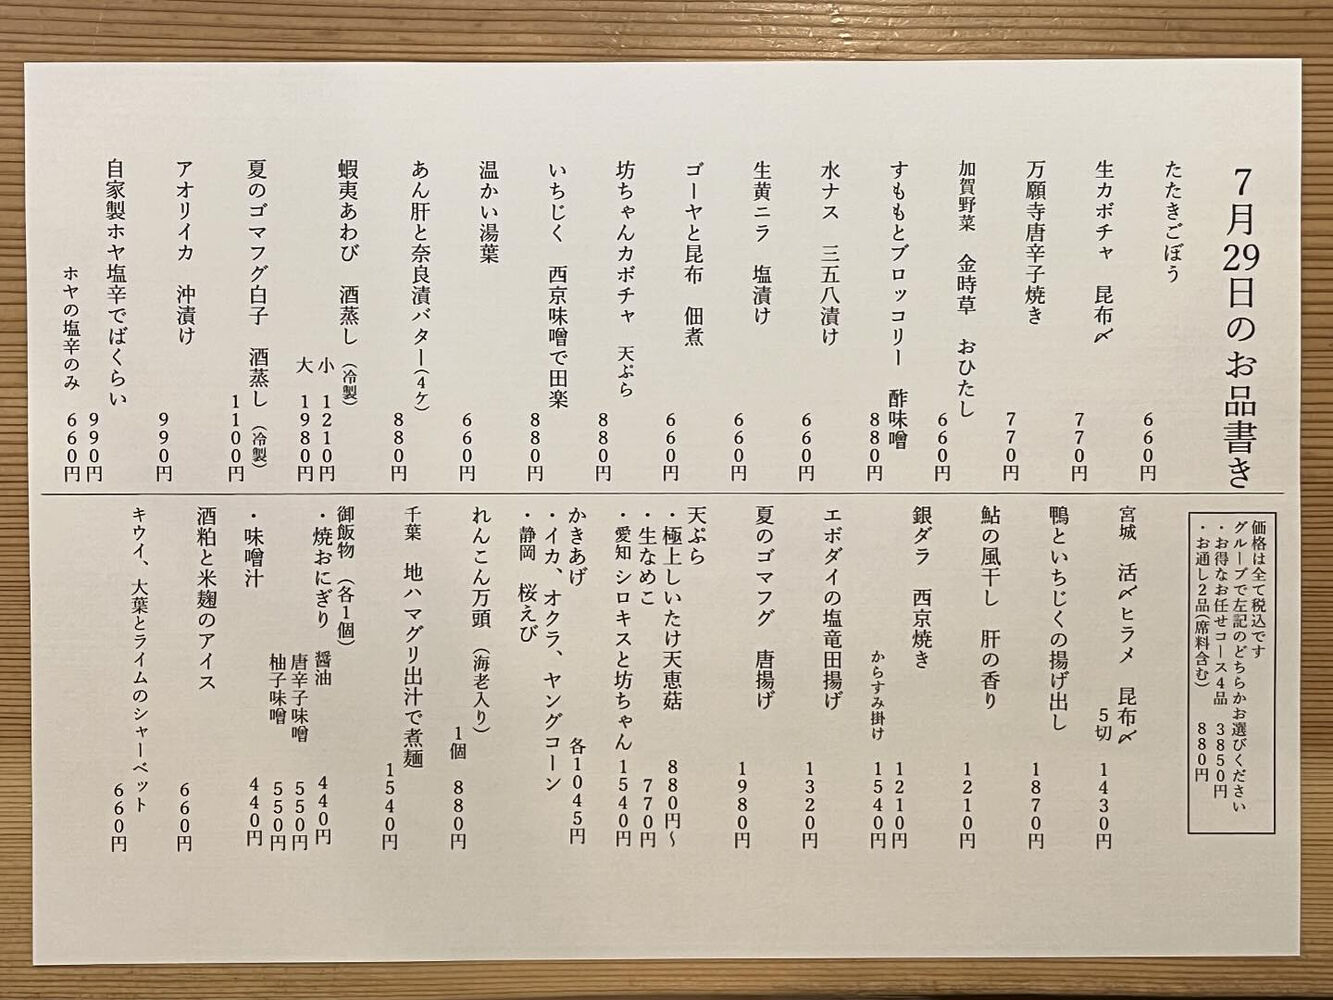 7月29日のお品書き
たたきごぼう 660円
生カボチャ 昆布〆 770円
万願寺唐辛子焼き 770円
加賀野菜 金時草 おひたし 660円
すももとブロッコリー 酢味噌 880円
水ナス 三五八漬け 660円
生黄ニラ 塩漬け 660円
ゴーヤと昆布 佃煮 660円
坊ちゃんカボチャ 天ぷら 880円
いちじく 西京味噌で田楽 880円
温かい湯葉 660円
あん肝と奈良漬バター(4ケ) 880円
蝦夷あわび 酒蒸し(冷製)
小 1210円
大 1980円
夏のゴマフグ白子 酒蒸し(冷製) 1100円
アオリイカ 沖漬け 990円
自家製ホヤ塩辛でばくらい 990円
ホヤの塩辛のみ 660円
価格は全て税込です
グループで左記のどちらかお選びください
・お得なお任せコース4品 3850円
・お通し2品(席料含む) 880円
宮城 活〆ヒラメ 昆布〆
5切 1430円
鴨といちじくの揚げ出し 1870円
鮎の風干し 肝の香り 1210円
銀ダラ 西京焼き 1210円
からすみ掛け 1540円
エボダイの塩竜田揚げ 1320円
夏のゴマフグ 唐揚げ 1980円
天ぷら
・極上しいたけ天恵菇 880円〜
・生なめこ 770円
・愛知 シロキスと坊ちゃん 1540円
かきあげ 各1045円
・イカ、オクラ、ヤングコーン
・静岡 桜えび
れんこん万頭(海老入り)
1個 880円
千葉 地ハマグリ出汁で煮麺 1540円
御飯物(各1個)
・焼おにぎり 醤油 440円
唐辛子味噌 550円
柚子味噌 550円
・味噌汁 440円
酒粕と米麹のアイス 660円
キウイ、大葉とライムのシャーベット 660円